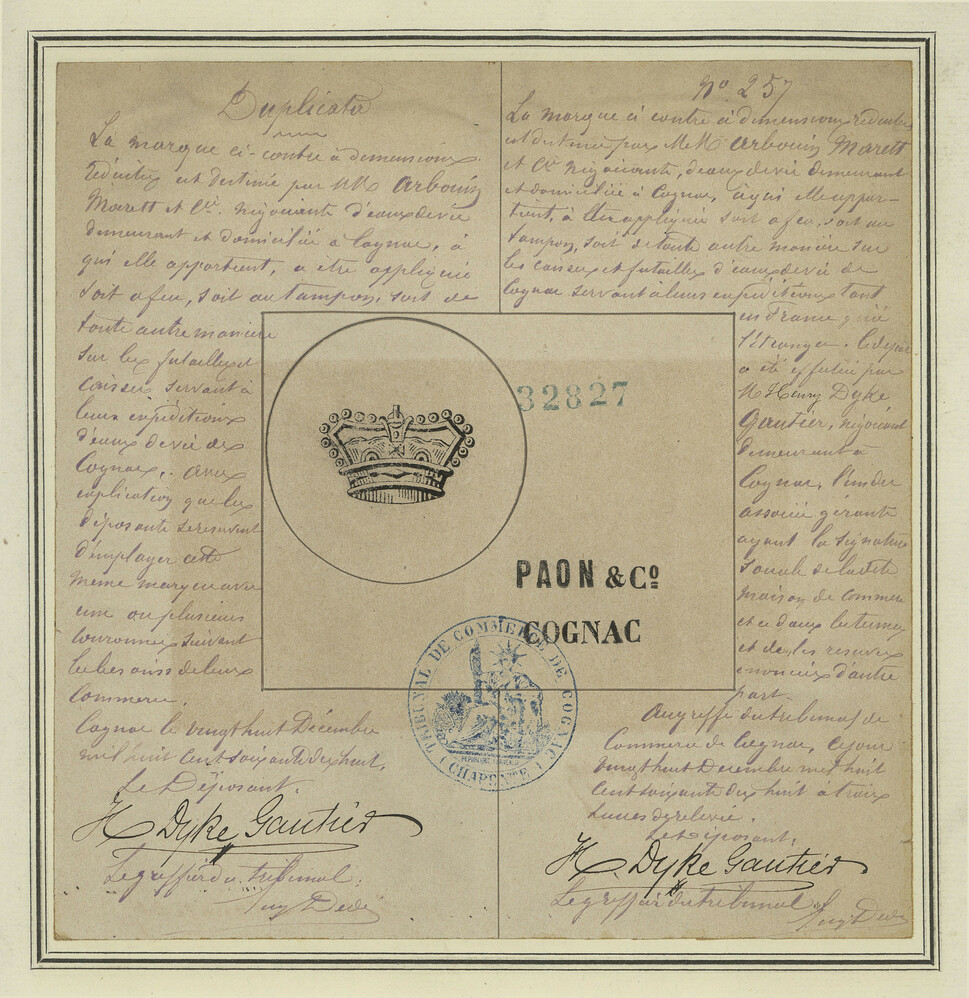 Duplicata
La marque ci-contre à dimensions
réduites est destinée par MM Arbouin
Marett et Cie. négociants d'eaux de vie
demeurant et domiciliés à Cognac, à
qui elle appartient, a être appliquée
soit a feu, soit au tampon, soit de
toute autre manière
sur les futailles et
caisses servant à
leurs expéditions
d'eaux de vie de
Cognac, avec
explication que les
déposants se réservent
d'employer cette
même marque avec
une ou plusieurs
couronnes suivant
les besoins de leur
Commerce.
Cognac le vingt huit Décembre
mil huit cent soixante dix huit.
Le Déposant.
H Dyke Gautier
Le greffier du tribunal.
No 257
La marque ci contre à dimensions réduites
est destinée par MM Arbouin Marett
et Cie négociants, d'eaux de vie demeurant
et domiciliés à Cognac, à qui elle appar-
tient, à être appliquée soit a feu, soit au
tampon, soit de toute autre manière sur
les caisses et futailles d'eaux de vie de
Cognac servant à leurs expéditions tant
en France qu'à
l'étranger. Le dépôt
a été effectué par
M Henry Dyke
Gautier, négociant
demeurant à
Cognac, l'un des
associés gérants
ayant la signature
sociale de la dite
maison de commerce
et ce dans les termes
et de les reserves
énoncées d'autre
part.
Au greffe du tribunal de
Commerce de Cognac, ce jour
vingt huit Decembre mil huit
cent soixante dix huit à trois
heures de relevée.
Le Déposant,
H Dyke Gautier
Le greffier du tribunal
32827
PAON & Co
COGNAC
TRIBUNAL DE COMMERCE DE COGNAC
(CHARENTE)